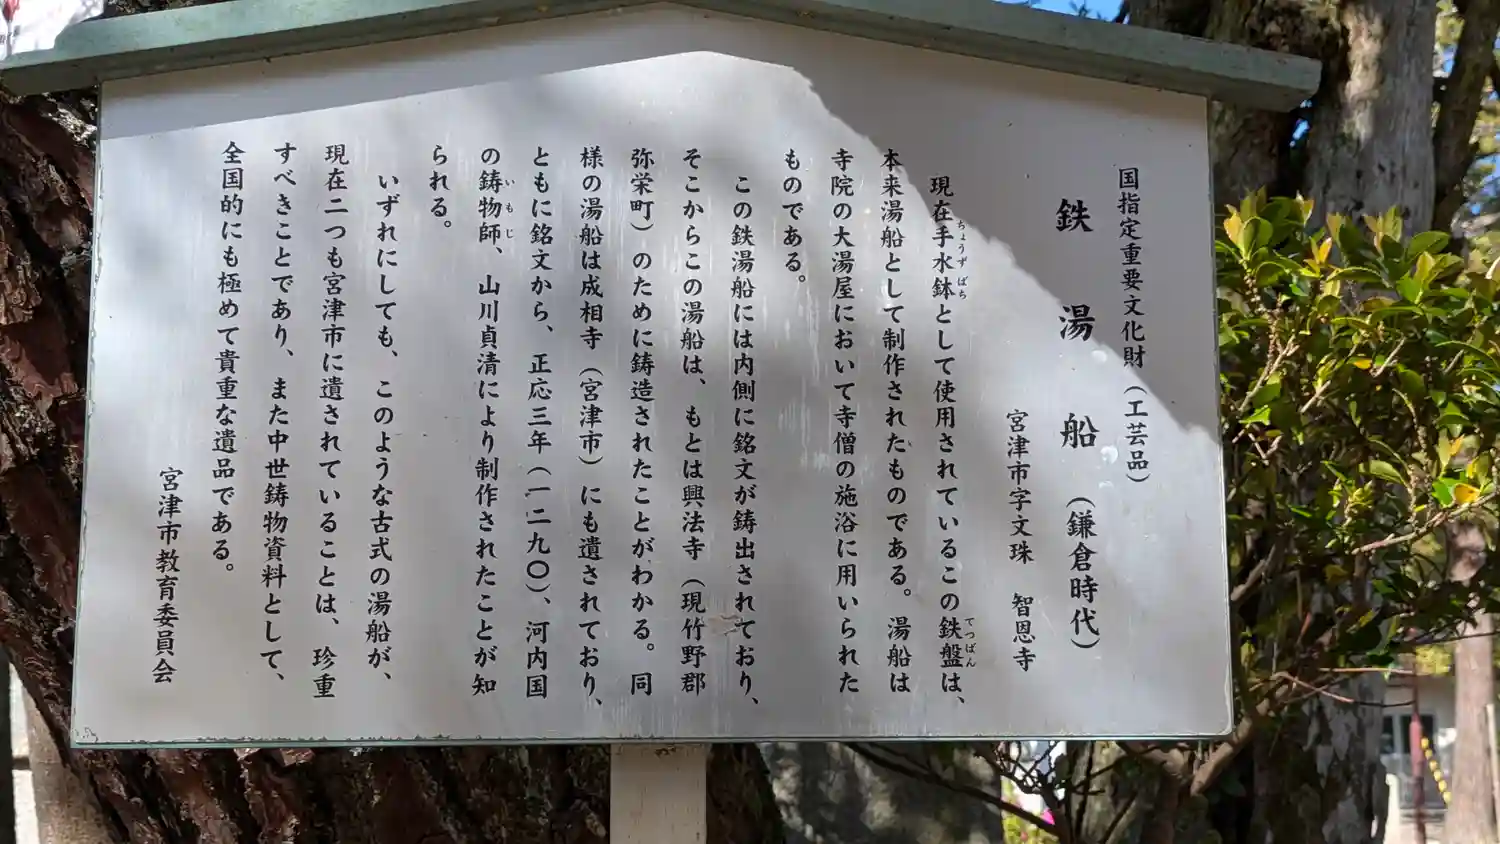 国指定重要文化財（工芸品）
鉄湯船（鎌倉時代）
宮津市字文珠　智恩寺
現在手水鉢ちょうずばちとして使用されているこの鉄盤てつばんは、
本来湯船として制作されたものである。湯船は
寺院の大湯屋において寺僧の施浴に用いられた
ものである。
この鉄湯船には内側に銘文が鋳出されており、
そこからこの湯船は、もとは興法寺（現竹野郡
弥栄町）のために鋳造されたことがわかる。同
様の湯船は成相寺（宮津市）にも遺されており、
ともに銘文から、正応三年（一二九〇）、河内国
の鋳物師いもじ、山川貞清により制作されたことが知
られる。
いずれにしても、このような古式の湯船が、
現在二つも宮津市に遺されていることは、珍重
すべきことであり、また中世鋳物資料として、
全国的にも極めて貴重な遺品である。
宮津市教育委員会